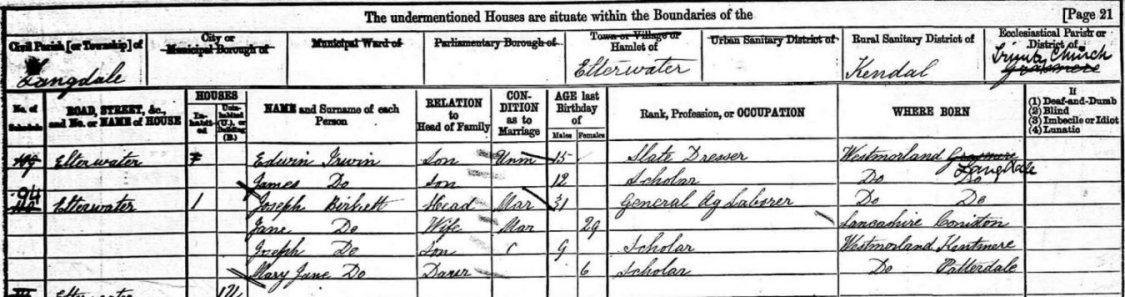 The undermentioned Houses are situate within the Boundaries of the [Page 21
Civil Parish [or Township] of City or Municipal Borough of Municipal Ward of Parliamentary Borough of Town or Village or Hamlet of Urban Sanitary District of Rural Sanitary District of Ecclesiastical Parish or District of
Langdale Elterwater Kendal Trinity Church Grasmere
No. of Schedule ROAD, STREET, &c., and No. or NAME of HOUSE HOUSES In-habit-ed Unin-habited (U.), or Building (B.) NAME and Surname of each Person RELATION to Head of Family CON-DITION as to Marriage AGE last Birthday of Males Females Rank, Profession, or OCCUPATION WHERE BORN If (1) Deaf-and-Dumb (2) Blind (3) Imbecile or Idiot (4) Lunatic
Elterwater Edwin Irwin Son Unm 15 Slate Dresser Westmorland Grasmere Langdale
James Do Son 12 Scholar Do Do
94 Elterwater 1 Joseph Birkett Head Mar 31 General Ag Laborer Do Do
Jane Do Wife Mar 29 Lancashire Coniston
Joseph Do Son 9 Scholar Westmorland Kentmere
Mary Jane Do Daur 6 Scholar Do Patterdale
Elterwater